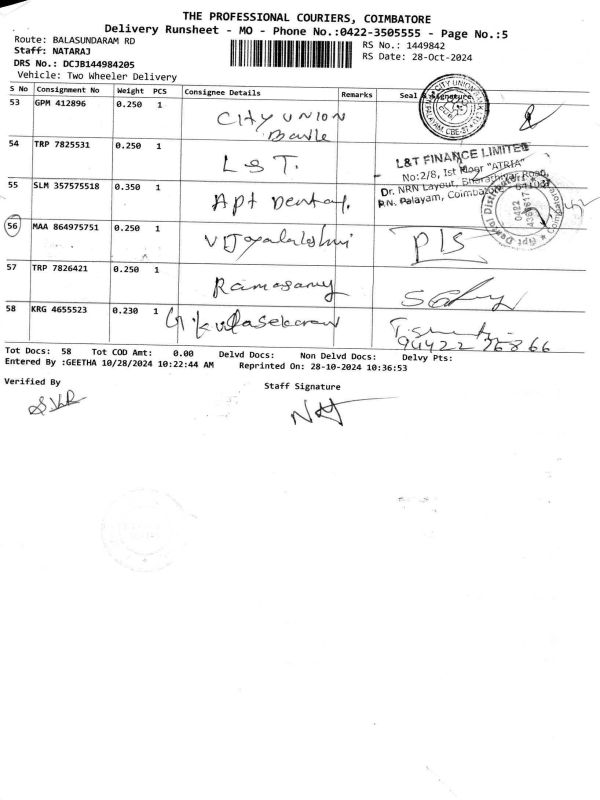 THE PROFESSIONAL COURIERS, COIMBATORE
Delivery Runsheet - MO - Phone No.:0422-3505555 - Page No.:5
Route: BALASUNDARAM RD
RS No.: 1449842
Staff: NATARAJ
RS Date: 28-Oct-2024
DRS No.: DCJB144984205
Vehicle: Two Wheeler Delivery
S No Consignment No Weight PCS Consignee Details Remarks Seal & Signature
53 GPM 412896 0.250 1 CITY UNION
Bank
54 TRP 7825531 0.250 1 L & T. L&T FINANCE LIMITED
No:2/8, Ist Floor "ATRIA"
Dr. NRN Layout, Bharathiyar Road,
P.N. Palayam, Coimbatore
55 SLM 357575518 0.350 1 Apt Dental.
56 MAA 864975751 0.250 1 Vijayalakshmi
57 TRP 7826421 0.250 1 Ramasamy
58 KRG 4655523 0.230 1 G. Kulasekaran
94422 36866
Tot Docs: 58 Tot COD Amt: 0.00 Delvd Docs: Non Delvd Docs: Delvy Pts:
Entered By :GEETHA 10/28/2024 10:22:44 AM Reprinted On: 28-10-2024 10:36:53
Verified By
Staff Signature